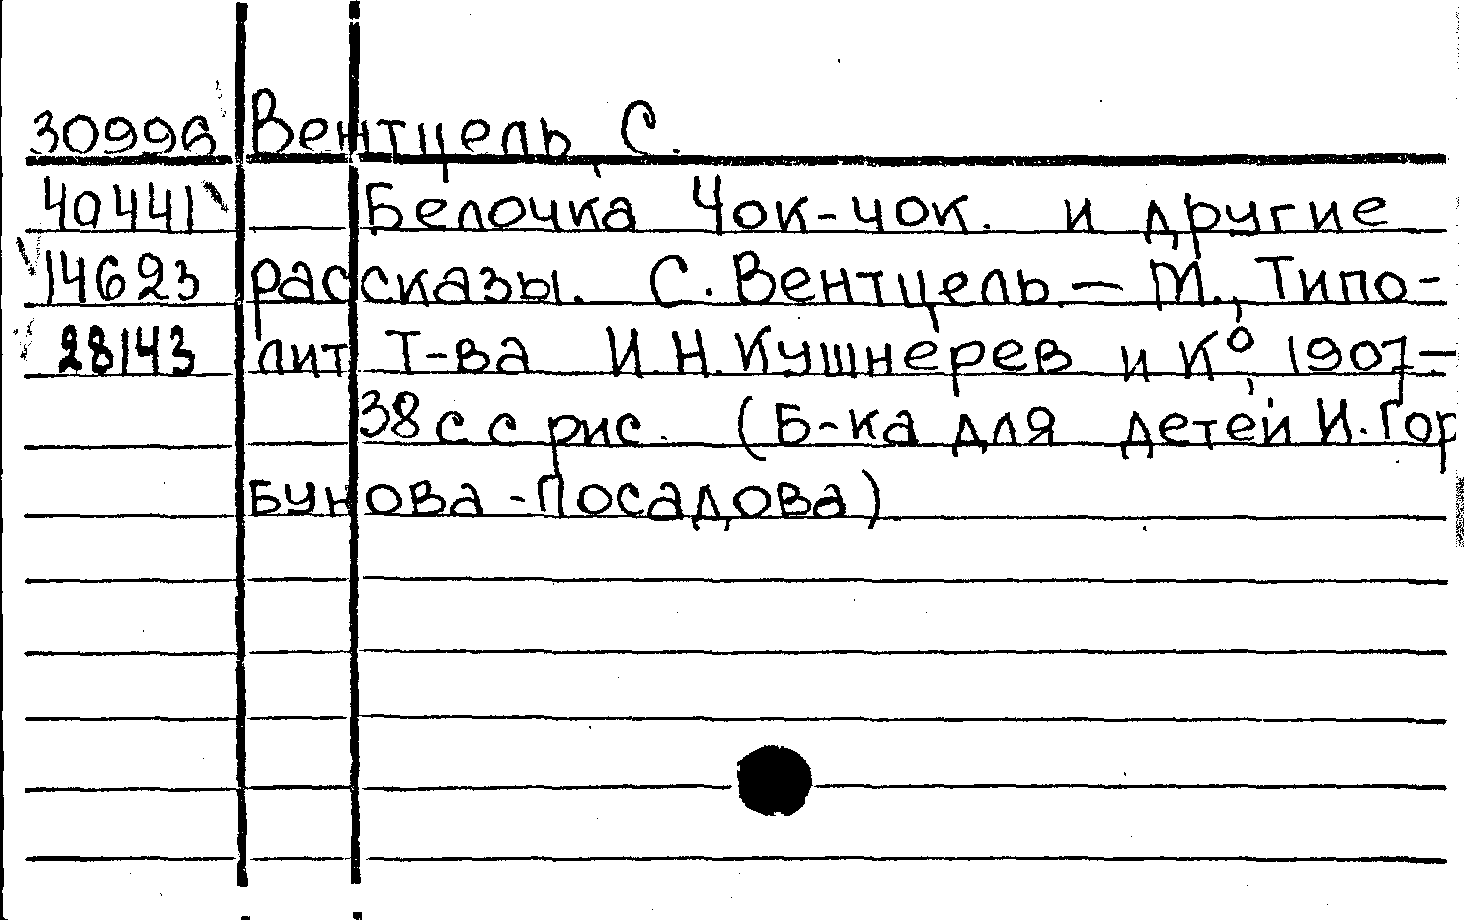 30996 Вентцель, С.
40441 Белочка Чок-чок. и другие
14623 рассказы. С. Вентцель — М., Типо-
28143 лит Т-ва И.Н.Кушнерев и К°, 1907—
38 с с рис. (Б-ка для детей И.Гор
бунова-Посадова)